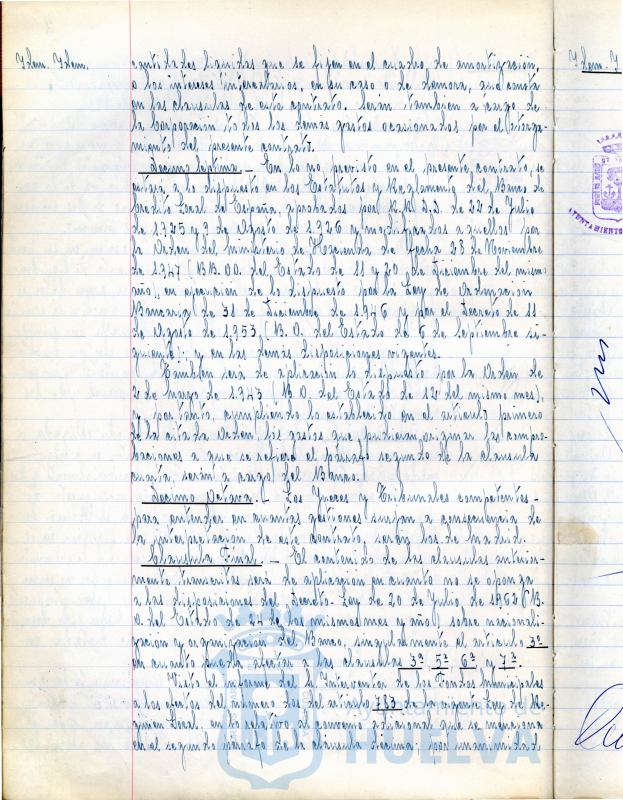 Idem. Idem.
cantidades liquidas que se fijen en el cuadro de amortización,
o los intereses intercalarios, en su caso o de demora, que consta
en las clausulas de este contrato. Seran tambien a cargo de
la Corporación todos los demas gastos ocasionados por el otorga-
miento del presente contrato.
Decimo Septima.- En lo no previsto en el presente contrato, se
estará a lo dispuesto en los Estatutos y Reglamento del Banco de
Credito Local de España, aprobados por R.R. D.D. de 22 de Julio
de 1925 y 3 de Agosto de 1926 y modificados aquellos por
la Orden del Ministerio de Hacienda de fecha 28 de Noviembre
de 1947 (BB.OO. del Estado de 11 y 20 de Diciembre del mismo
año), en ejecución de lo dispuesto por la Ley de Ordenación
Bancaria de 31 de Diciembre de 1946 y por el Decreto de 11
de Agosto de 1953 (B.O. del Estado de 6 de Septiembre si-
guiente), y en las demás disposiciones vigentes.
Tambien será de aplicación lo dispuesto por la Orden de
2 de Marzo de 1943 (B.O. del Estado de 12 del mismo mes),
y por tanto, cumpliendo lo establecido en el articulo primero
de la citada Orden, los gastos que pudieran originar las compro-
baciones a que se refiere el parrafo segundo de la clausula
cuarta, serán a cargo del Banco.
Decimo Octava.- Los Jueces y Tribunales competentes
para entender en cuantas gestiones surjan a consecuencia de
la interpretación de este contrato, serán los de Madrid.
Clausula Final.- El contenido de las clausulas anterior-
mente transcritas será de aplicación en cuanto no se oponga
a las disposiciones del Decreto-Ley de 20 de Julio de 1962 (B.
O. del Estado de 24 de los mismos mes y año) sobre nacionali-
zación y organización del Banco, singularmente el articulo 3º
en cuanto pueda afectar a las clausulas 3ª 5ª 6ª y 7ª.
Visto el informe del Sr Interventor de los Fondos Municipales
a los efectos del número dos del articulo 783 de la vigente Ley de Re-
gimen Local, en lo relativo al convenio adicional que se menciona
en el segundo parrafo de la clausula decima; por unanimidad
Idem. I
AYUNTAMIENTO
HUELVA